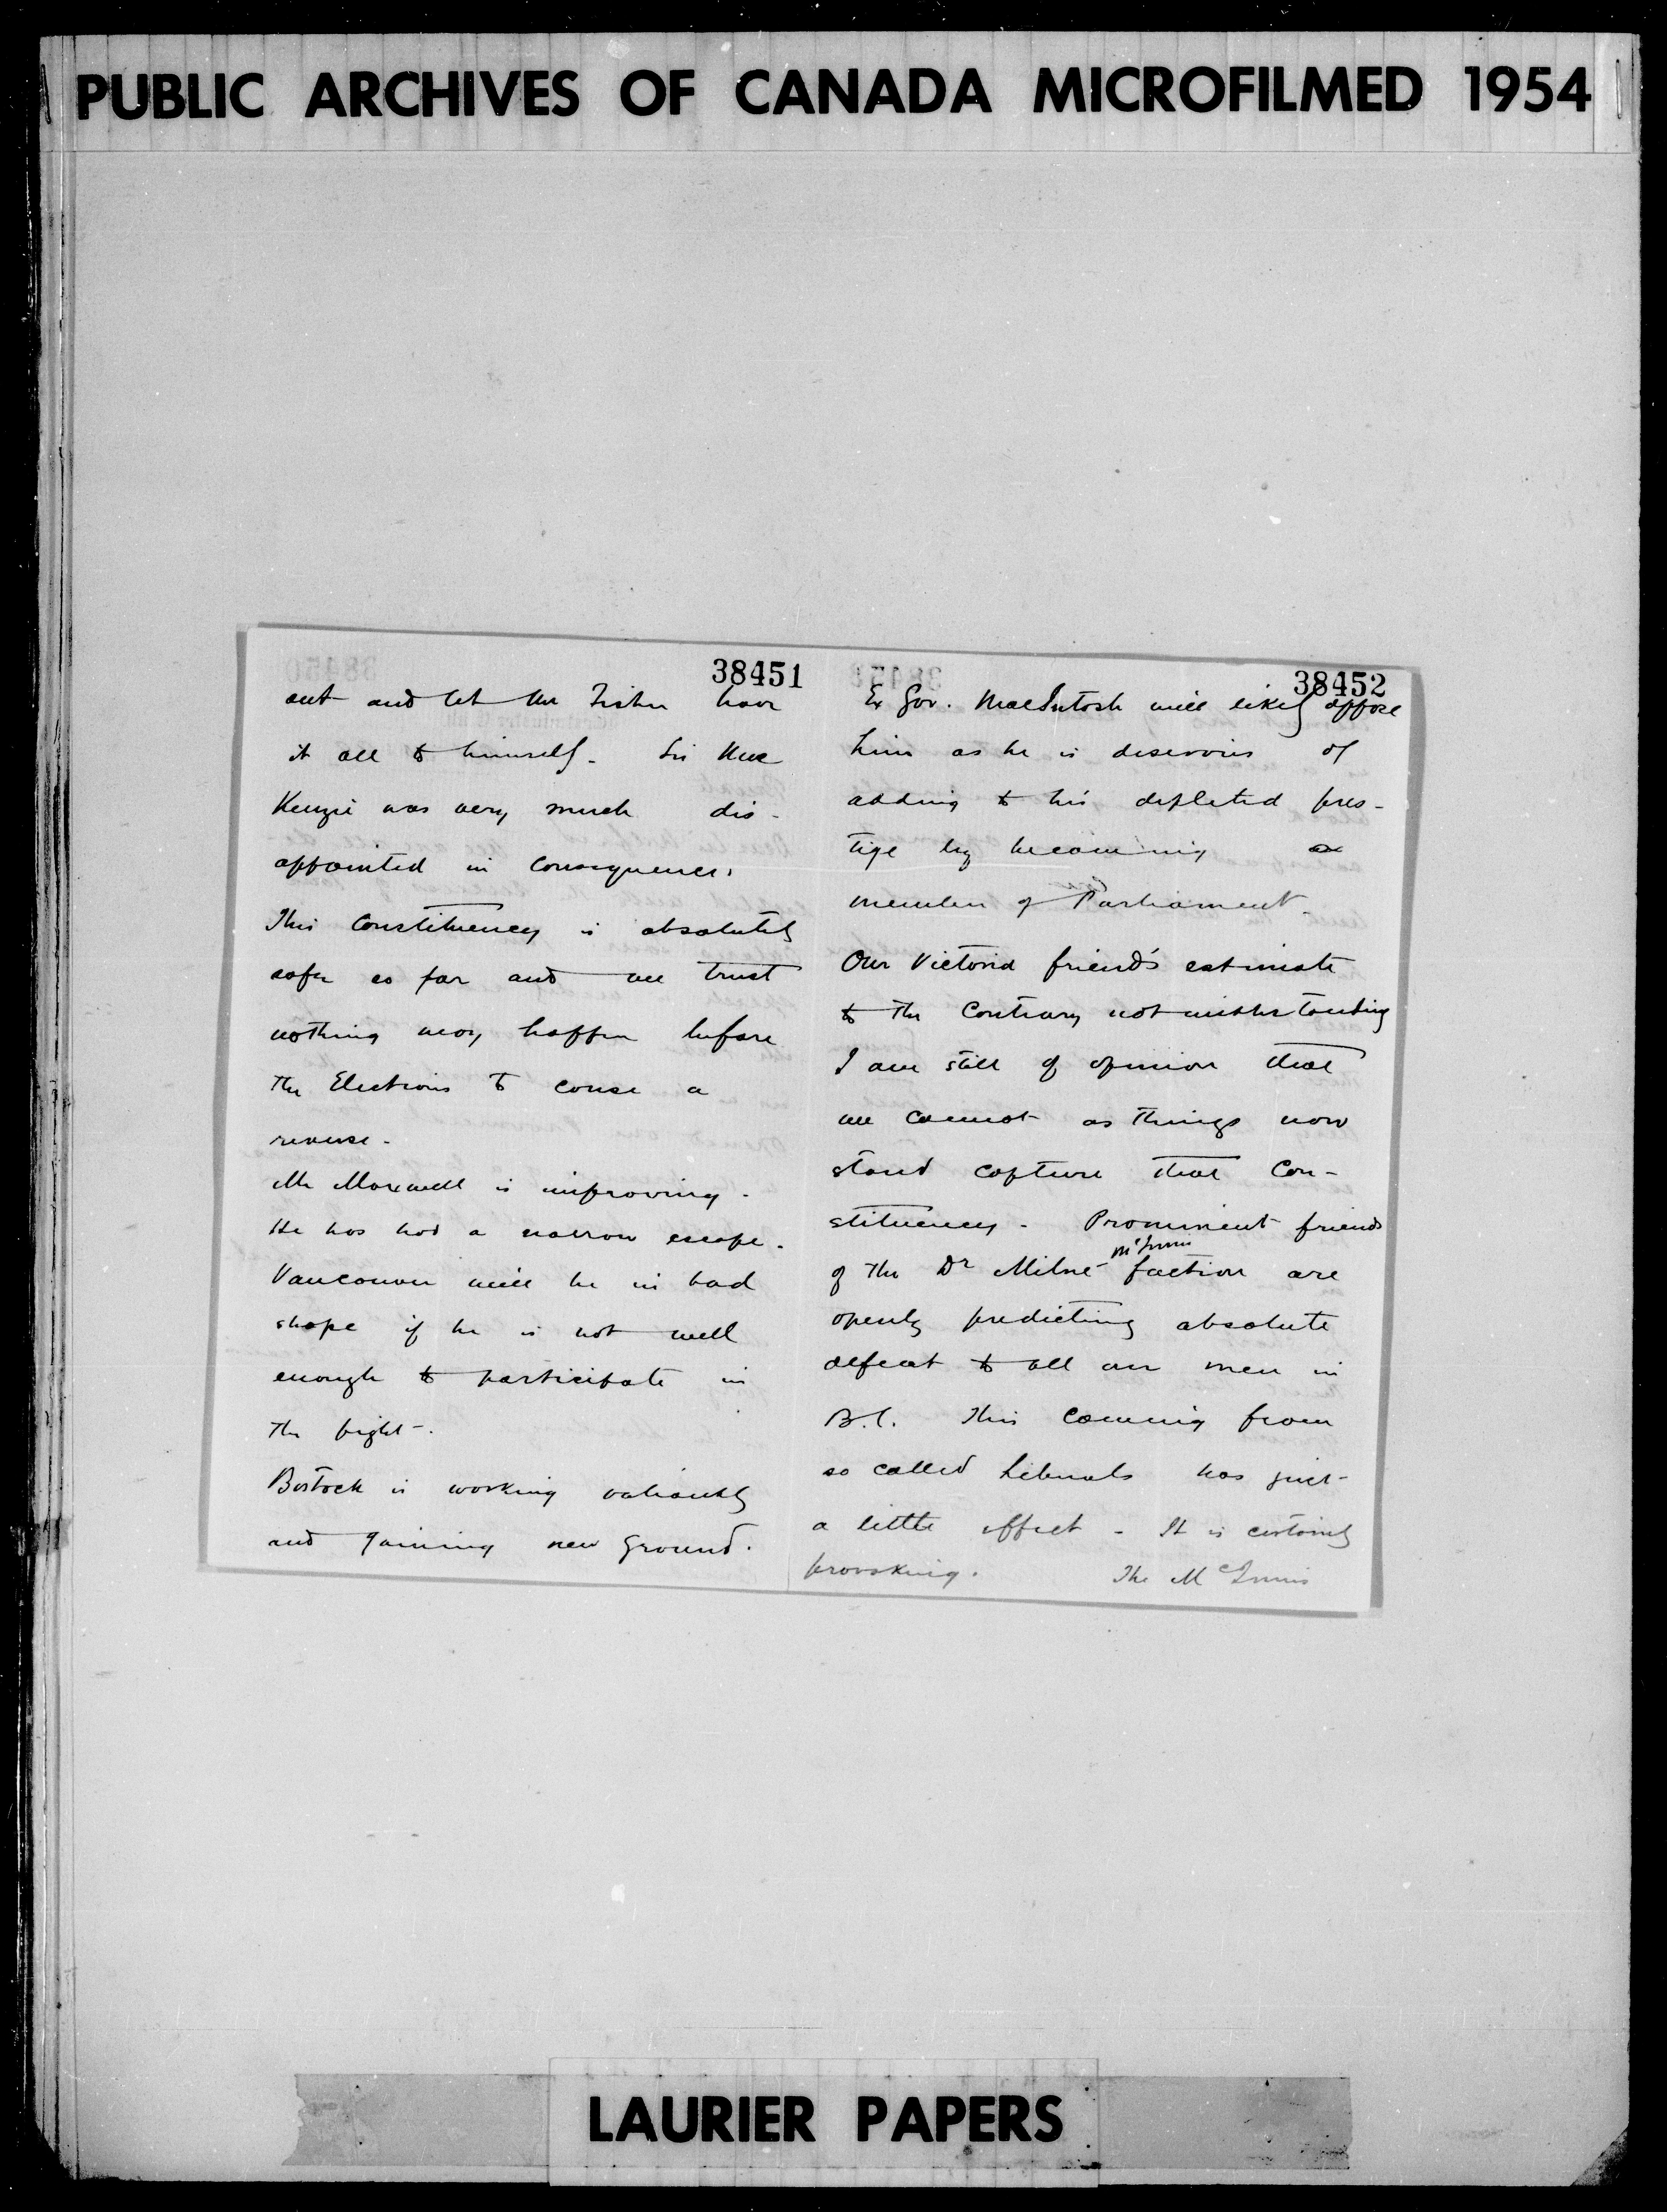 PUBLIC ARCHIVES OF CANADA MICROFILMED 1954
38451
out and let Mr Fisher have
it all to himself. Sir Mac
Kenzie was very much dis-
appointed in consequence.
This Constituency is absolutely
safe so far and we trust
nothing may happen before
the Elections to cause a
reverse.
Mr Maxwell is improving.
He has had a narrow escape.
Vancouver will be in bad
shape if he is not well
enough to participate in
the fight.
Bostock is working valiantly
and gaining new ground.
38452
Ex Gov. MacIntosh will likely oppose
him as he is deserous of
adding to his depleted pres-
tige by becoming a
member of Parliament.
Our Victoria friend's estimate
to the Contrary notwithstanding
I am still of opinion that
we cannot as things now
stand capture that Con-
stituency. Prominent friends
of the Dr Milne McInnis faction are
openly predicting absolute
defeat to all our men in
B.C. This coming from
so called Liberals has quiet
a little effect - It is certainly
provoking. The McInnis
LAURIER PAPERS